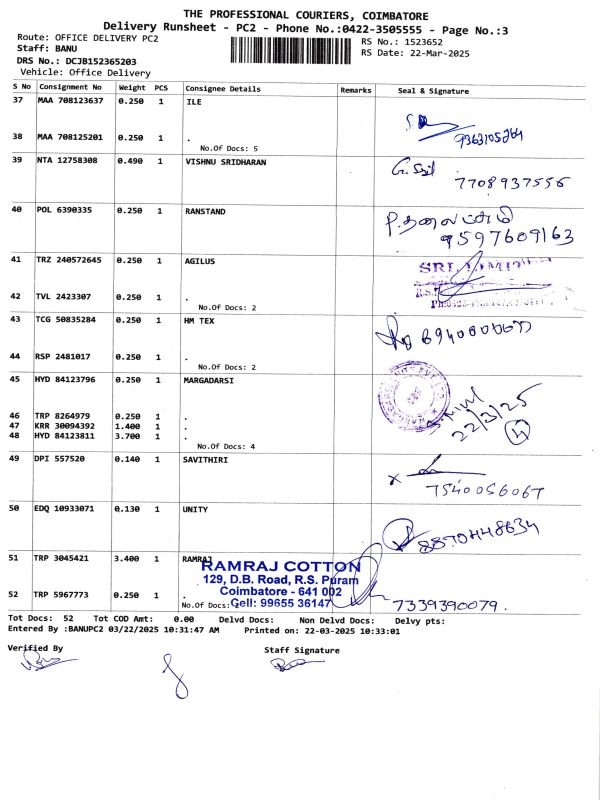 THE PROFESSIONAL COURIERS, COIMBATORE
Delivery Runsheet - PC2 - Phone No.:0422-3505555 - Page No.:3
Route: OFFICE DELIVERY PC2
RS No.: 1523652
Staff: BANU
RS Date: 22-Mar-2025
DRS No.: DCJB152365203
Vehicle: Office Delivery
S No Consignment No Weight PCS Consignee Details Remarks Seal & Signature
37 MAA 708123637 0.250 1 ILE
38 MAA 708125201 0.250 1 .
9363105264
No.Of Docs: 5
39 NTA 12758308 0.490 1 VISHNU SRIDHARAN
7708937556
40 POL 6390335 0.250 1 RANSTAND
9597609163
41 TRZ 240572645 0.250 1 AGILUS
SRL LIMITED
42 TVL 2423307 0.250 1 .
No.Of Docs: 2
43 TCG 50835284 0.250 1 HM TEX
44 RSP 2481017 0.250 1 .
No.Of Docs: 2
45 HYD 84123796 0.250 1 MARGADARSI
46 TRP 8264979 0.250 1 .
47 KRR 30094392 1.400 1 .
48 HYD 84123811 3.700 1 .
22/3/25
4
No.Of Docs: 4
49 DPI 557520 0.140 1 SAVITHIRI
x
7540056067
50 EDQ 10933071 0.130 1 UNITY
8870448634
51 TRP 3045421 3.400 1 RAMRAJ
RAMRAJ COTTON
129, D.B. Road, R.S. Puram
Coimbatore - 641 002
Cell: 99655 36147
52 TRP 5967773 0.250 1 .
No.Of Docs:
7339390079.
Tot Docs: 52 Tot COD Amt: 0.00 Delvd Docs: Non Delvd Docs: Delvy pts:
Entered By :BANUPC2 03/22/2025 10:31:47 AM Printed on: 22-03-2025 10:33:01
Verified By Staff Signature